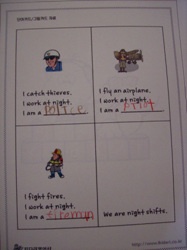 I catch thieves.
I work at night.
I am a police
I fly an airplane.
I work at night.
I am a pilot
I fight fires.
I work at night.
I am a fireman
We are night shifts.